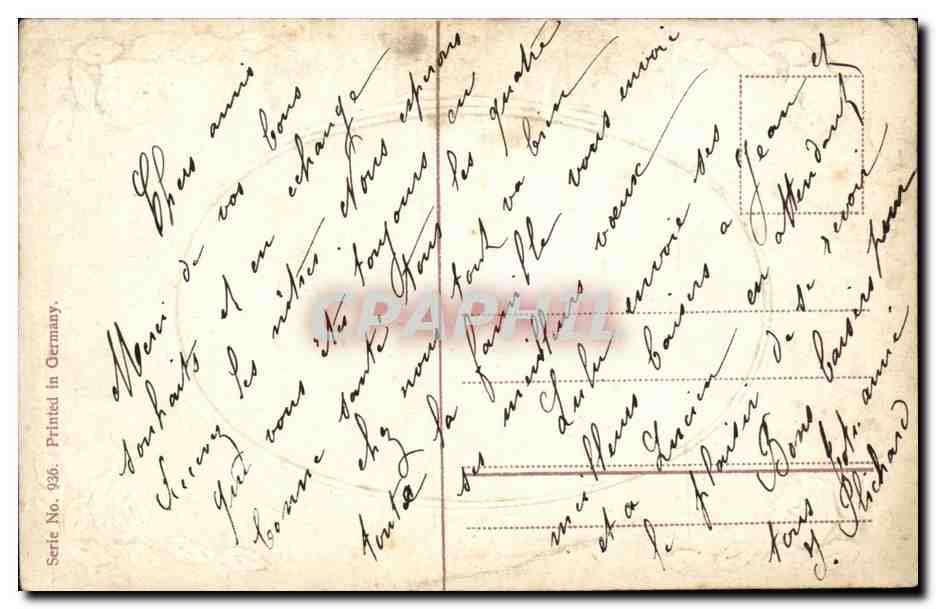 Chers amis
Merci de vos bons
souhaits et en échange
Recevez les nôtres Nous espérons
que vous êtes toujours en
bonne santé tous les quatre
chez nous tout va bien
toute la famille vous envoie
ses meilleurs voeux
Lulu envoie ses
meilleurs baisers a Jean et
et a Lucien en attendant
le plaisir de se revoir
Bons baisers pour
tous Votre amie
J. Richard
Serie No. 936. Printed in Germany.
CPAPHIL